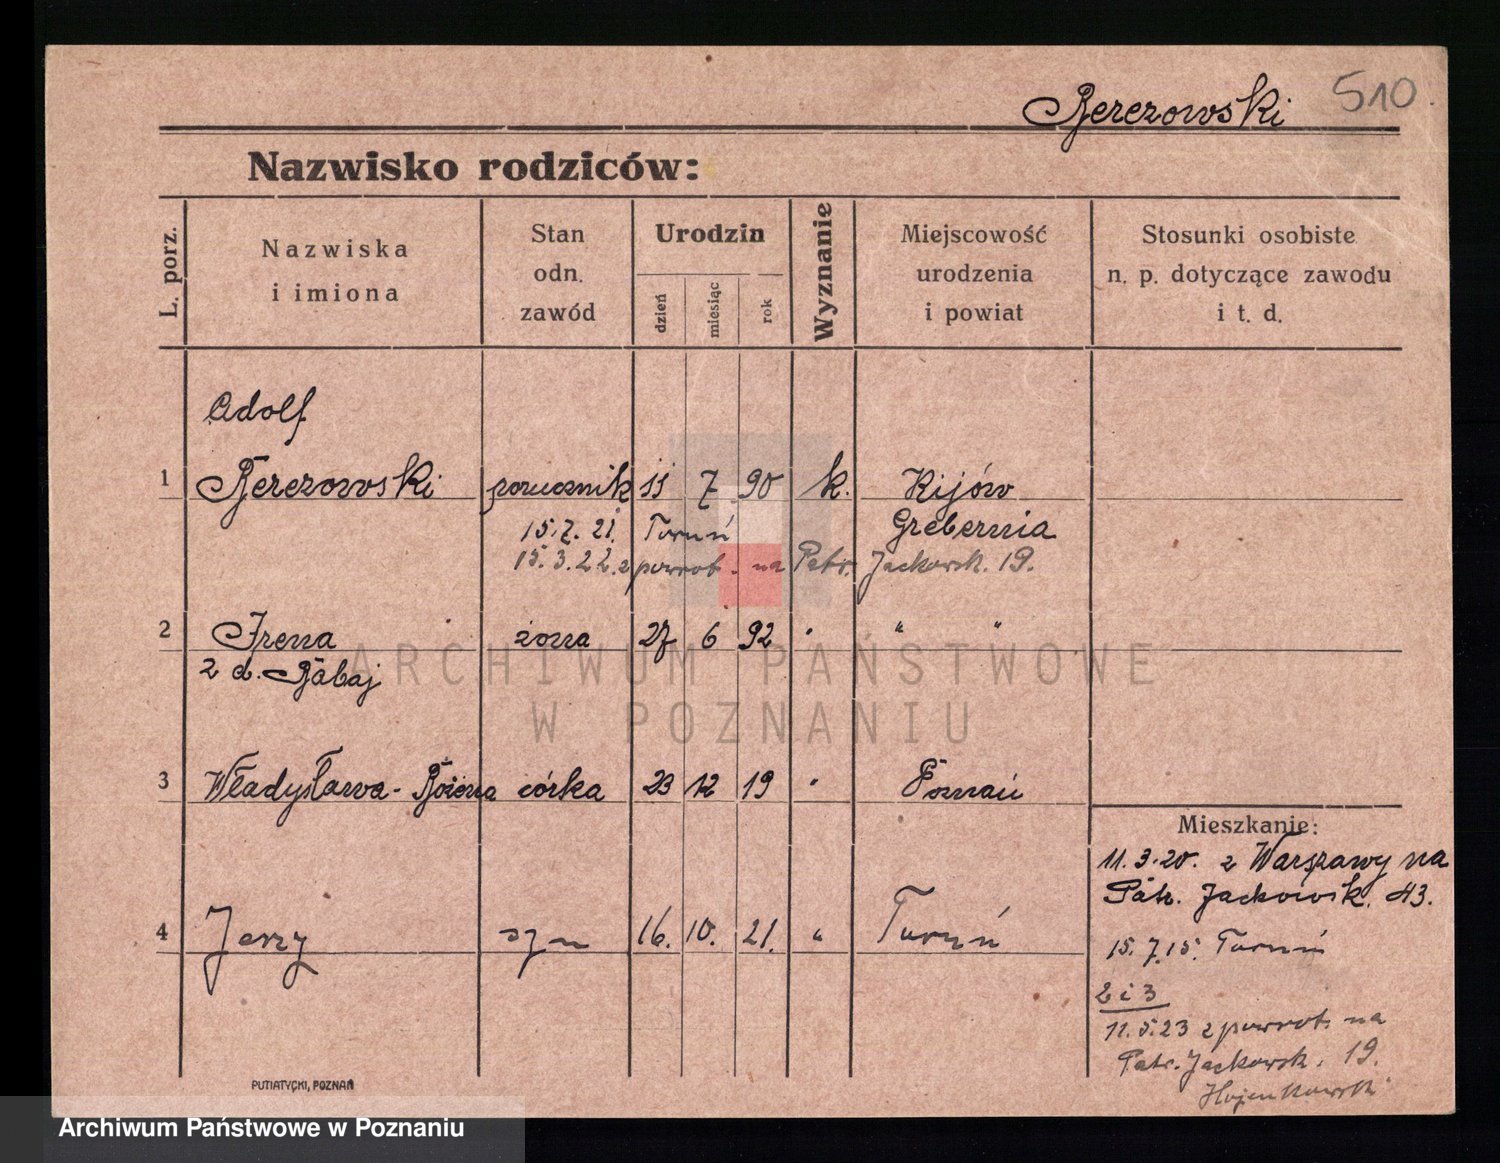 Berezowski 510.
Nazwisko rodziców:
L. porz.
Nazwiska i imiona
Stan odn. zawód
Urodzin
dzień
miesiąc
rok
Wyznanie
Miejscowość urodzenia i powiat
Stosunki osobiste n. p. dotyczące zawodu i t. d.
Adolf
1 Berezowski porucznik 11 7 90 k. Kijów
15.7.21. Toruń Grebernia
15.3.22. z powrot. na Patr. Jackowsk. 19.
2 Irena żona 27 6 92 " " "
z d. Babaj
3 Władysława-Bożena córka 23 12 19 " Poznań
Mieszkanie:
11.3.20. z Warszawy na
Patr. Jackowsk. 43.
4 Jerzy syn 16. 10. 21. " Toruń
15.7.15. Toruń
2 i 3
11.5.23 z powrot. na
Patr. Jackowsk. 19.
PUTIATYCKI, POZNAŃ
ARCHIWUM PAŃSTWOWE
W POZNANIU
Archiwum Państwowe w Poznaniu